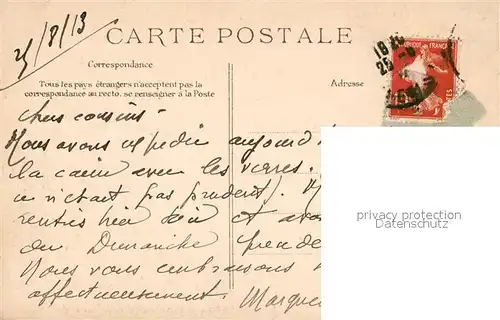 25/8/13
CARTE POSTALE
Correspondance
Tous les pays étrangers n'acceptent pas la
correspondance au recto. se renseigner à la Poste
Adresse
chers cousins
Nous avons expédié aujourd
la caisse avec les verres.
n'était pas prudent). N
rentrés hier soir et avons
du Dimanche peu de
Nous vous embrassons
affectueusement Margue
privacy protection
Datenschutz